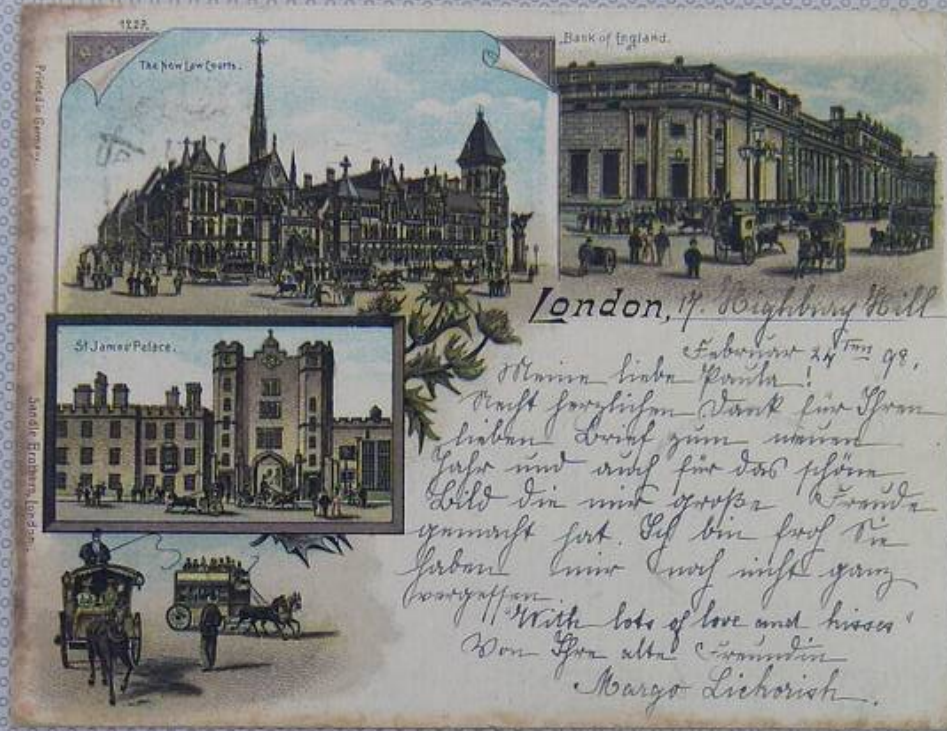 1227.
The New Law Courts.
Bank of England.
Printed in Germany.
St James' Palace.
Sandle Brothers, London.
London, 17. Highbury Hill
Februar 24ten 98.
Meine liebe Paula!
Recht herzlichen Dank für Ihren
lieben Brief zum neuen
Jahr und auch für das schöne
Bild die mir große Freude
gemacht hat. Ich bin froh Sie
haben mir noch nicht ganz
vergessen
"With lots of love and kisses"
Von Ihre alte Freundin
Margo Lickorish.